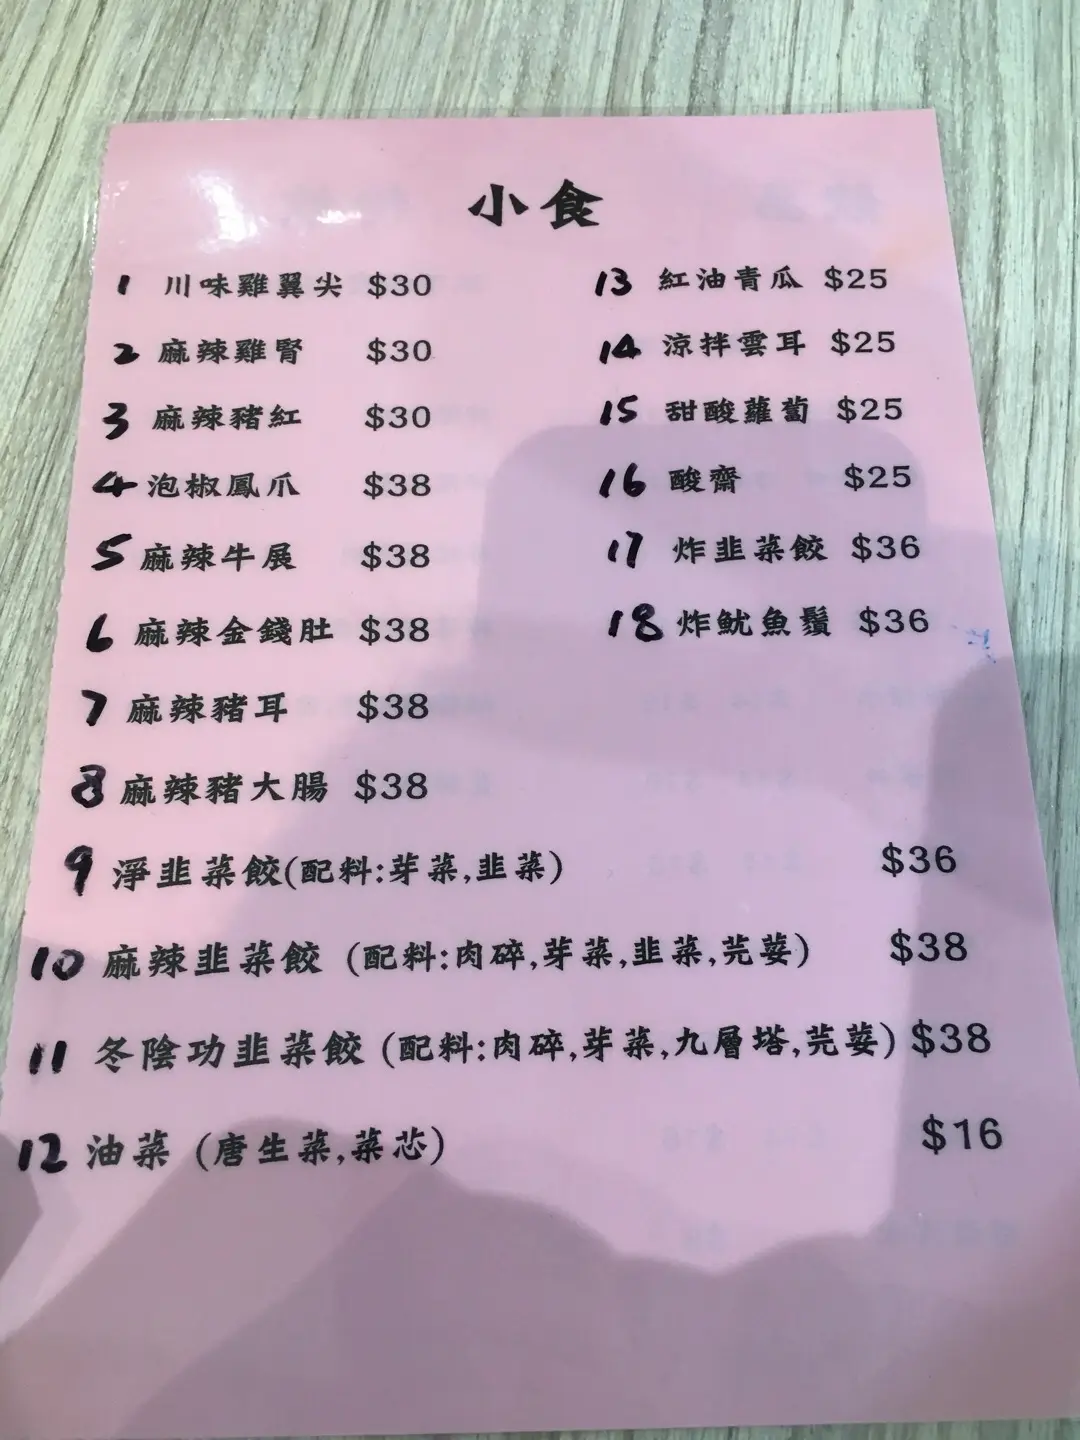 小食
1 川味雞翼尖 $30
2 麻辣雞腎 $30
3 麻辣豬紅 $30
4 泡椒鳳爪 $38
5 麻辣牛展 $38
6 麻辣金錢肚 $38
7 麻辣豬耳 $38
8 麻辣豬大腸 $38
9 淨韭菜餃(配料:芽菜,韭菜) $36
10 麻辣韭菜餃 (配料:肉碎,芽菜,韭菜,芫荽) $38
11 冬陰功韭菜餃 (配料:肉碎,芽菜,九層塔,芫荽) $38
12 油菜 (唐生菜,菜芯) $16
13 紅油青瓜 $25
14 涼拌雲耳 $25
15 甜酸蘿蔔 $25
16 酸齋 $25
17 炸韭菜餃 $36
18 炸魷魚鬚 $36